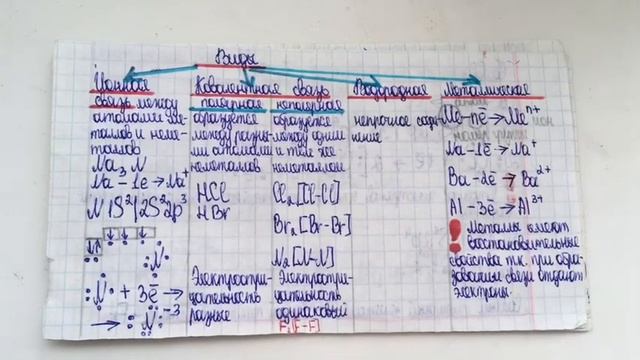 Виды
Ионная
связь между
атомами ме-
таллов и неме-
таллов
Na₃N
Na – 1ē → Na⁺
N 1S²|2S²2p³
N
N + 3ē →
→ N⁻³
Ковалентная связь
полярная
образуется
между разны-
ми атомами
неметаллов
HCl
HBr
Электроотри-
цательность
разные
неполярная
образуется
между одним
и тем же
неметаллом
Cl₂ [Cl–Cl]
Br₂ [Br–Br]
N₂ [N–N]
Электроотри-
цательность
одинаковый
F₂ [F–F]
Водородная
непрочное соед-
инение
Металлическая
Me – nē → Meⁿ⁺
Na – 1ē → Na⁺
Ba – 2ē → Ba²⁺
Al – 3ē → Al³⁺
! Металлы имеют
восстановительные
свойства т.к. при обра-
зовании связи отдают
электроны.